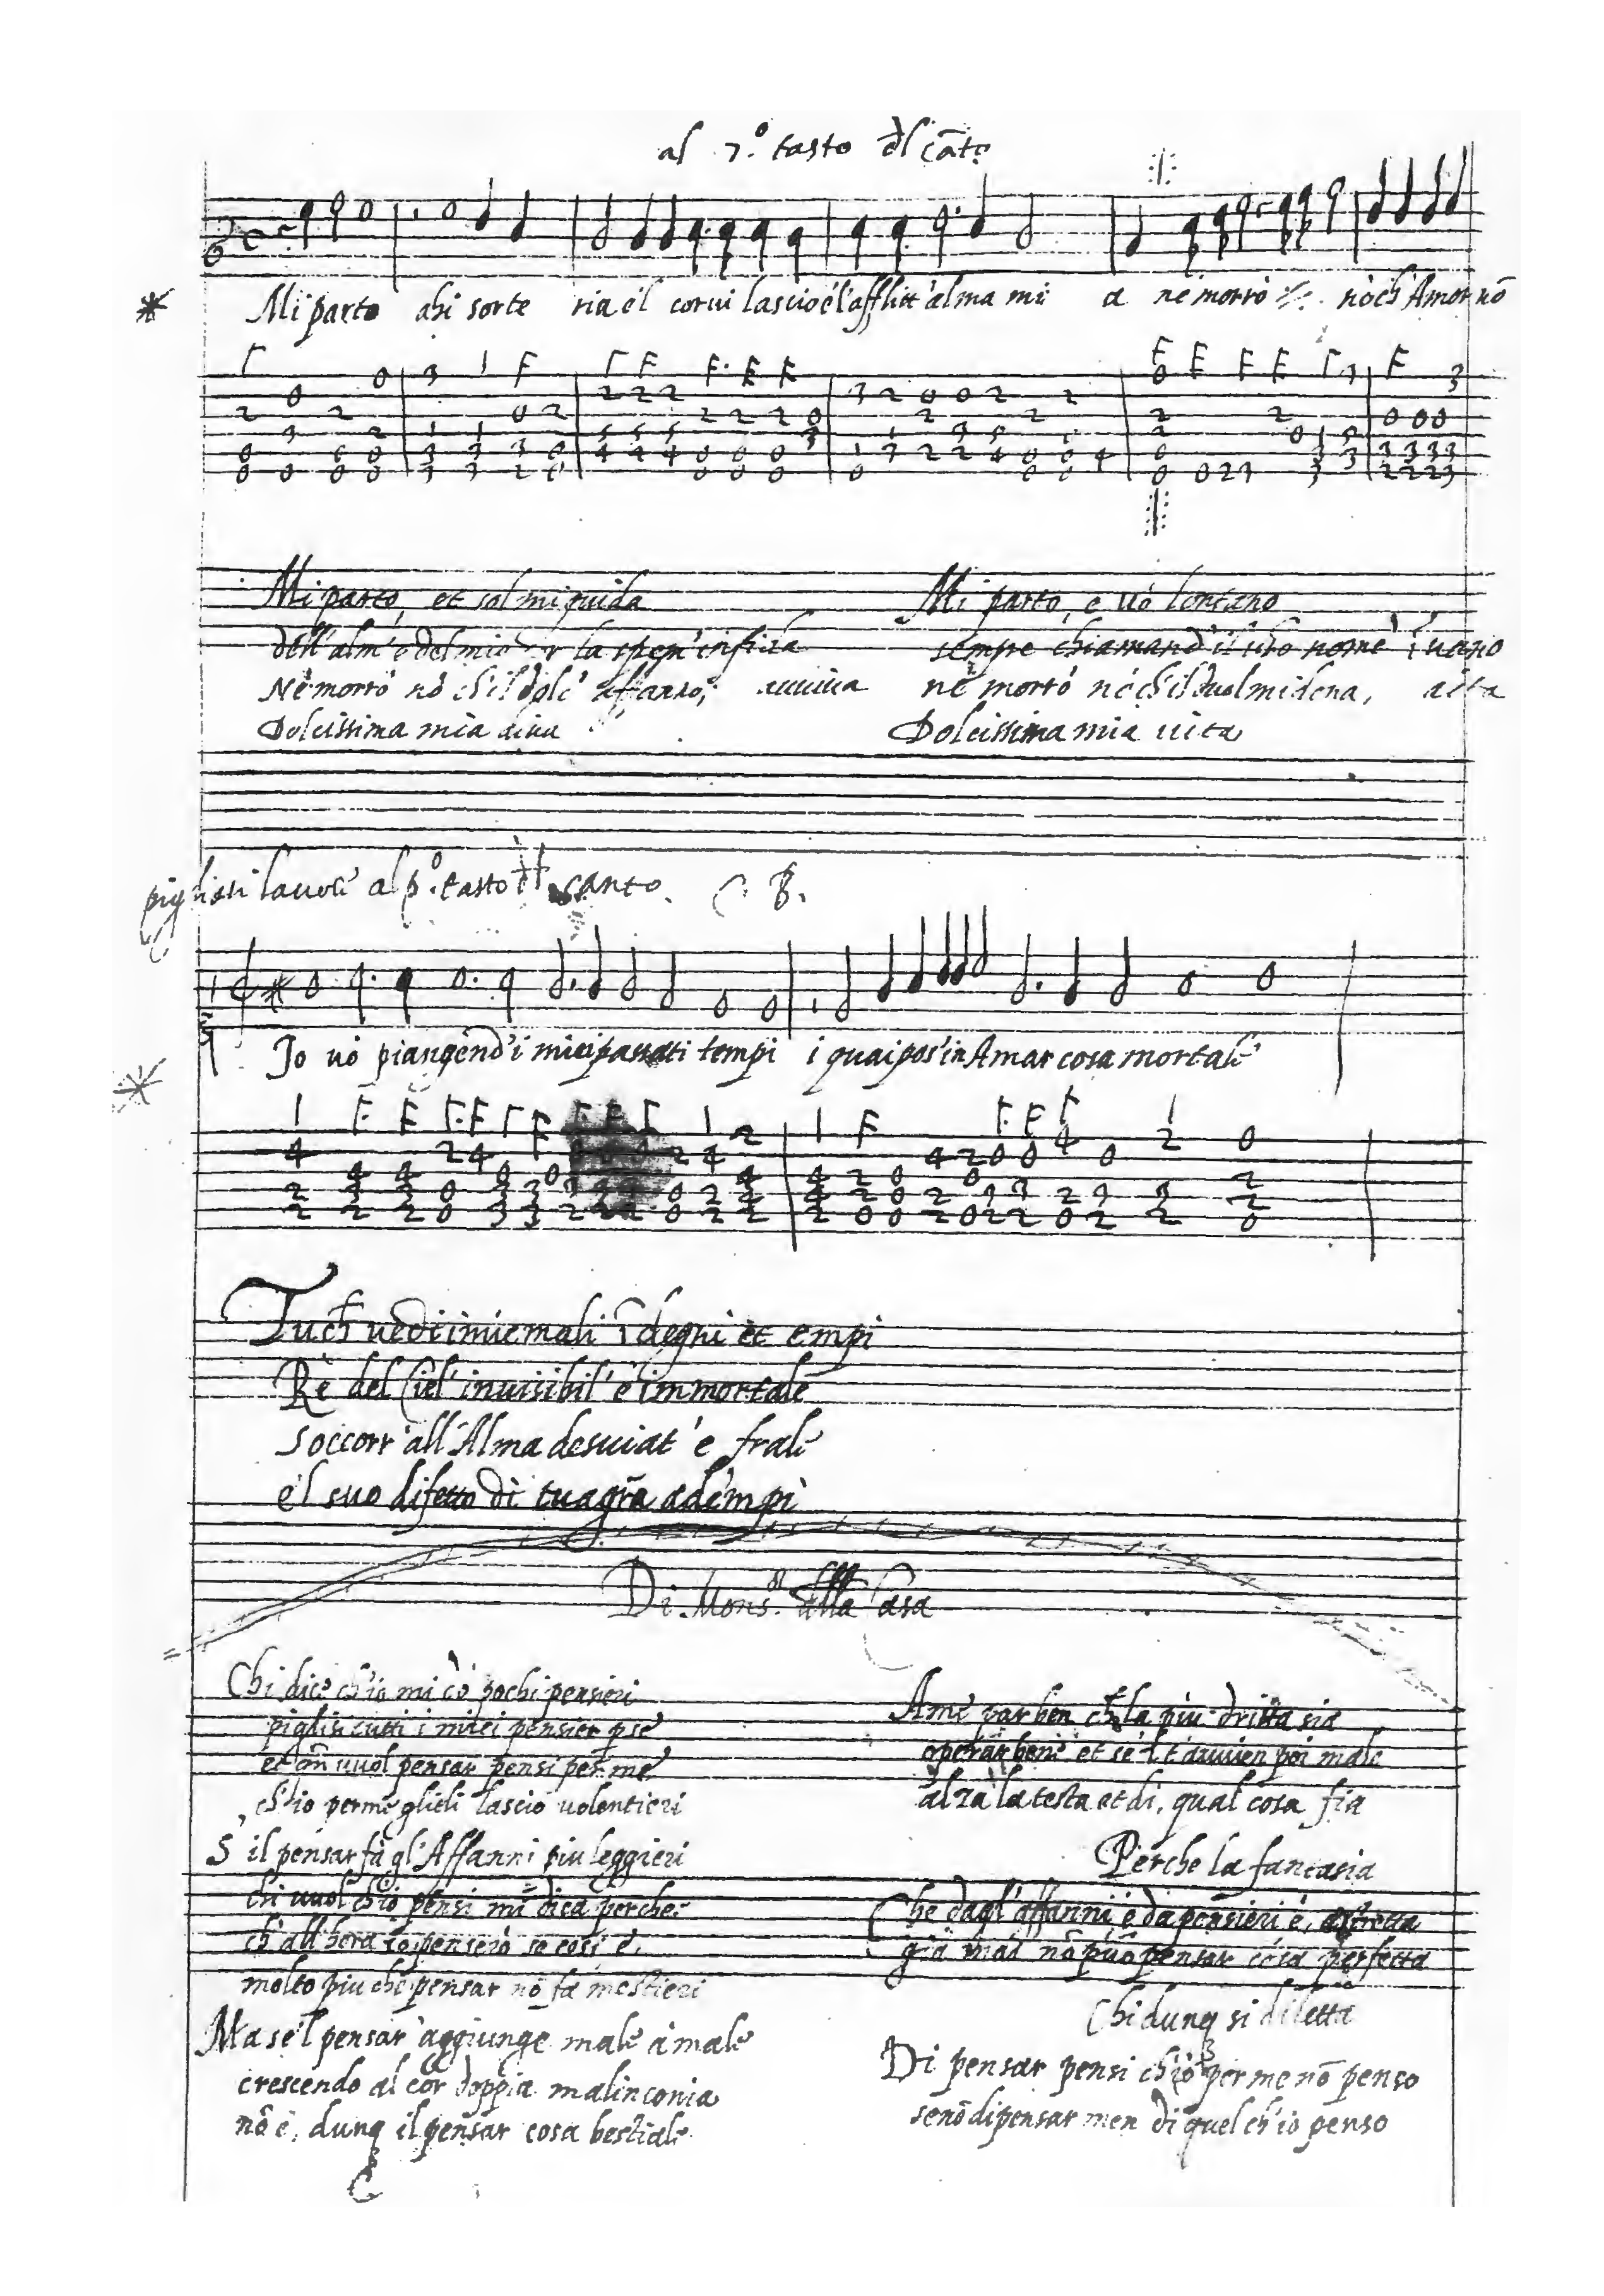 al 7.º tasto dl cāto
Mi parto ahi sorte ria e'l cor vi lascio e l'afflitt'alma mi a ne morrò nò ch'Amor nō
Mi parto, et sol mi guida
dell'alm' e del mio cor la spem' infida
Ne morrò nò ch'il dolc' affanno,
Dolcissima mia diva
Mi parto, e vò lontano
sempre chiamand'il vro nome ī vano
ne morrò nò ch'il duol mi dona, aita
Dolcissima mia vita
piglisi la voce al pº. tasto dl canto.
Io vò piangend'i miei passati tempi i quai pos'in Amar cosa mortale
Tu ch vedi i miei mali īdegni et empi
Rè del Ciel' invisibil' e immortale
Soccorr'all'Alma desviat' e frale
e'l suo difetto di tua grā adempi
Di Mons.or della Casa
Chi dice ch'io mi dò pochi pensieri
piglisi tutti i miei pensier p se
et chi vuol pensar pensi per me
ch'io per me glieli lascio volentieri
S'il pensar fa gl'Affanni piu leggieri
chi vuol ch'io pensi mi dica perche
ch'all'hora io penserò se così è.
molto piu che pensar nō fa mestieri
Ma se'l pensar aggiunge male à male
crescendo al cor doppia malinconia
nō è, dunq il pensar cosa bestiale
A me par ben ch la piu dritta sia
operar bene et se'l t'avvien poi male
alza la testa et di, qual cosa fia
Perche la fantasia
Che dagl'affanni e da pensieri è, astretta
già mai nō può pensar cosa perfetta
Chi dunq si diletta
Di pensar pensi ch'io per me nō penso
senō di pensar men di quel ch'io penso